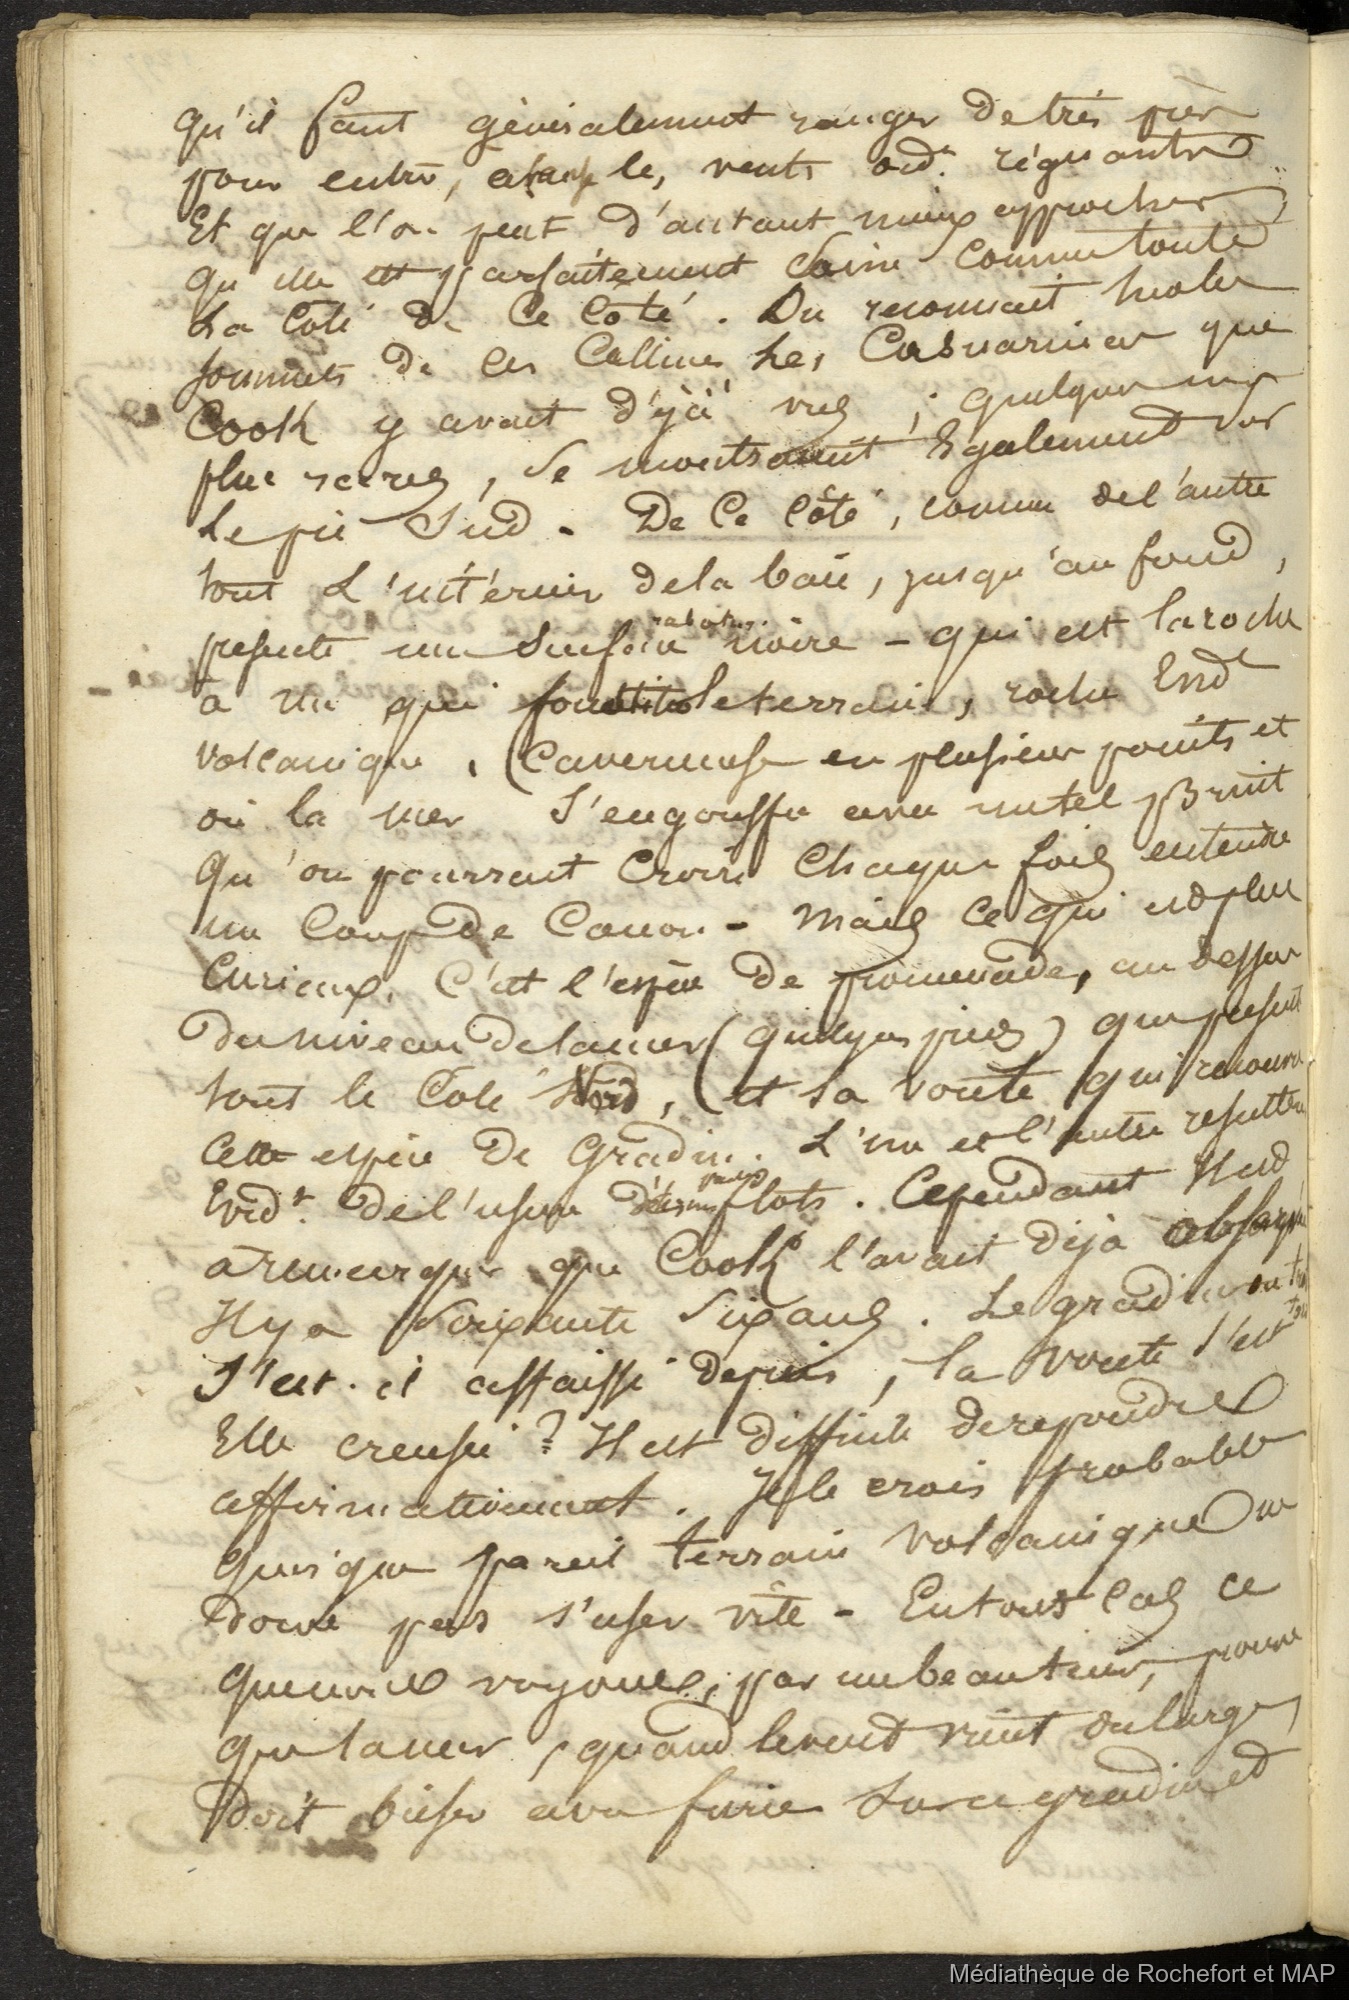 qu'il faut généralement ranger de très près
pour entrer, à cause des vents ord.t régnants
Et que l'on peut d'autant mieux approcher,
qu'elle est parfaitement saine comme toute
La Coté de Ce Coté. On reconnait sur les
sommets de ces Collines Les Casuarinas que
Cook y avait déjà vus ; quelques uns
plus rares, se montraient Egalement sur
Le pic Sud - De Ce Côté, comme de l'autre
tout L'intérieur de la baie, jusqu'au fond,
présente une surface noire - qui est la roche
à nu qui le terrain, roche Evid.t
volcanique, (Caverneuse en plusieurs points et
où la mer S'engouffre avec un tel Bruit
Qu'on pourrait Croire Chaque fois entendre
un Coup de Canon - Mais Ce qui est plus
Curieux, C'est l'espèce de promenade, au dessus
du niveau de la mer (quelques pieds) que présente
tout le Coté Nord, (et sa voute qui recouvre
Cette espèce de Gradin. L'un et l'autre resultent
Evid.t de l'usure des flots. Cependant Il est
à remarquer que Cook l'avait déjà
Il y a Soixante Six ans. Le gradin ou
S'est-il affaissé depuis, la voute s'est
Elle creusée ? Il est difficile de repondre
affirmativement. Je le crois probable
Quoique pareil terrain volcanique ne
doive pas s'user vite - En tous Cas ce
que nous voyons, par un beau tems, prouve
que la mer, quand le vent vient du large,
Doit briser avec furie Sur ce gradin et
Médiathèque de Rochefort et MAP